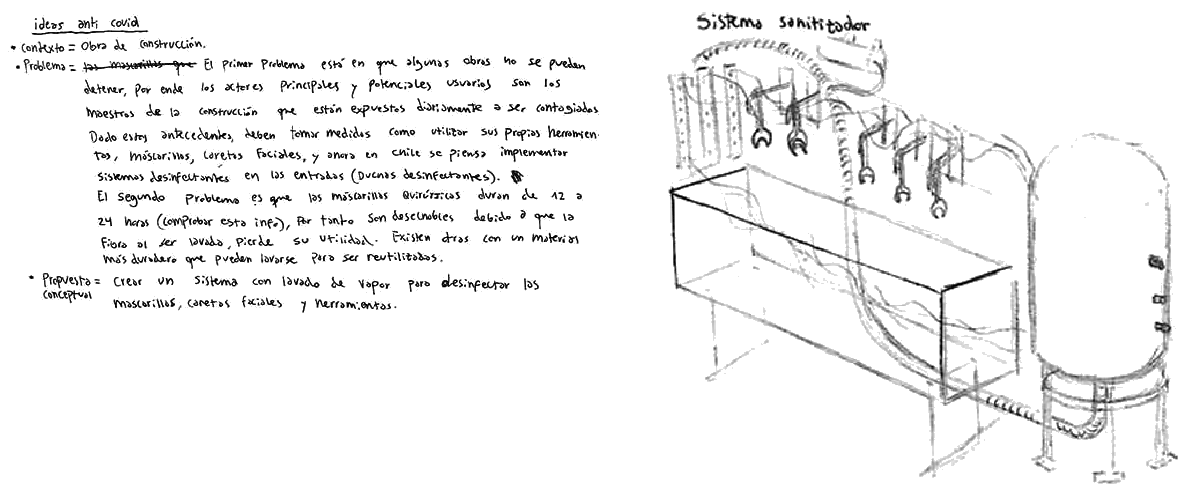 ideas anti covid
• Contexto = Obra de construcción.
• Problema = las mascarillas que El primer Problema está en que algunas obras no se pueden
detener, por ende los actores principales y potenciales usuarios son los
maestros de la construcción que están expuestos diariamente a ser contagiados
Dado estos antecedentes, deben tomar medidas como utilizar sus propias herramien-
tas, máscarillas, caretas faciales, y ahora en chile se piensa implementar
sistemas desinfectantes en las entradas (Duchas desinfectantes).
El segundo problema es que las máscarillas Quirúrgicas duran de 12 a
24 horas (comprobar esta info), por tanto son desechables debido a que la
fibra al ser lavada, pierde su utilidad. Existen otras con un material
más duradero que pueden lavarse para ser reutilizadas.
• Propuesta = Crear un sistema con lavado de vapor para desinfectar las
conceptual mascarillas, caretas faciales y herramientas.
Sistema sanititador